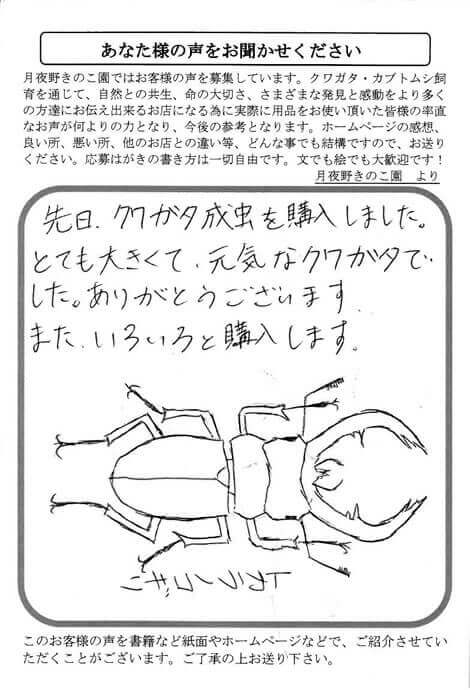 あなた様の声をお聞かせください
月夜野きのこ園ではお客様の声を募集しています。クワガタ・カブトムシ飼
育を通じて、自然との共生、命の大切さ、さまざまな発見と感動をより多く
の方達にお伝え出来るお店になる為に実際に用品をお使い頂いた皆様の率直
なお声が何よりの力となり、今後の参考となります。ホームページの感想、
良い所、悪い所、他のお店との違い等、どんな事でも結構ですので、お送り
ください。応募はがきの書き方は一切自由です。文でも絵でも大歓迎です！
月夜野きのこ園　より
先日、クワガタ成虫を購入しました。
とても大きくて、元気なクワガタで
した。ありがとうございます
また、いろいろと購入します。
このお客様の声を書籍など紙面やホームページなどで、ご紹介させてい
ただくことがございます。ご了承の上お送り下さい。